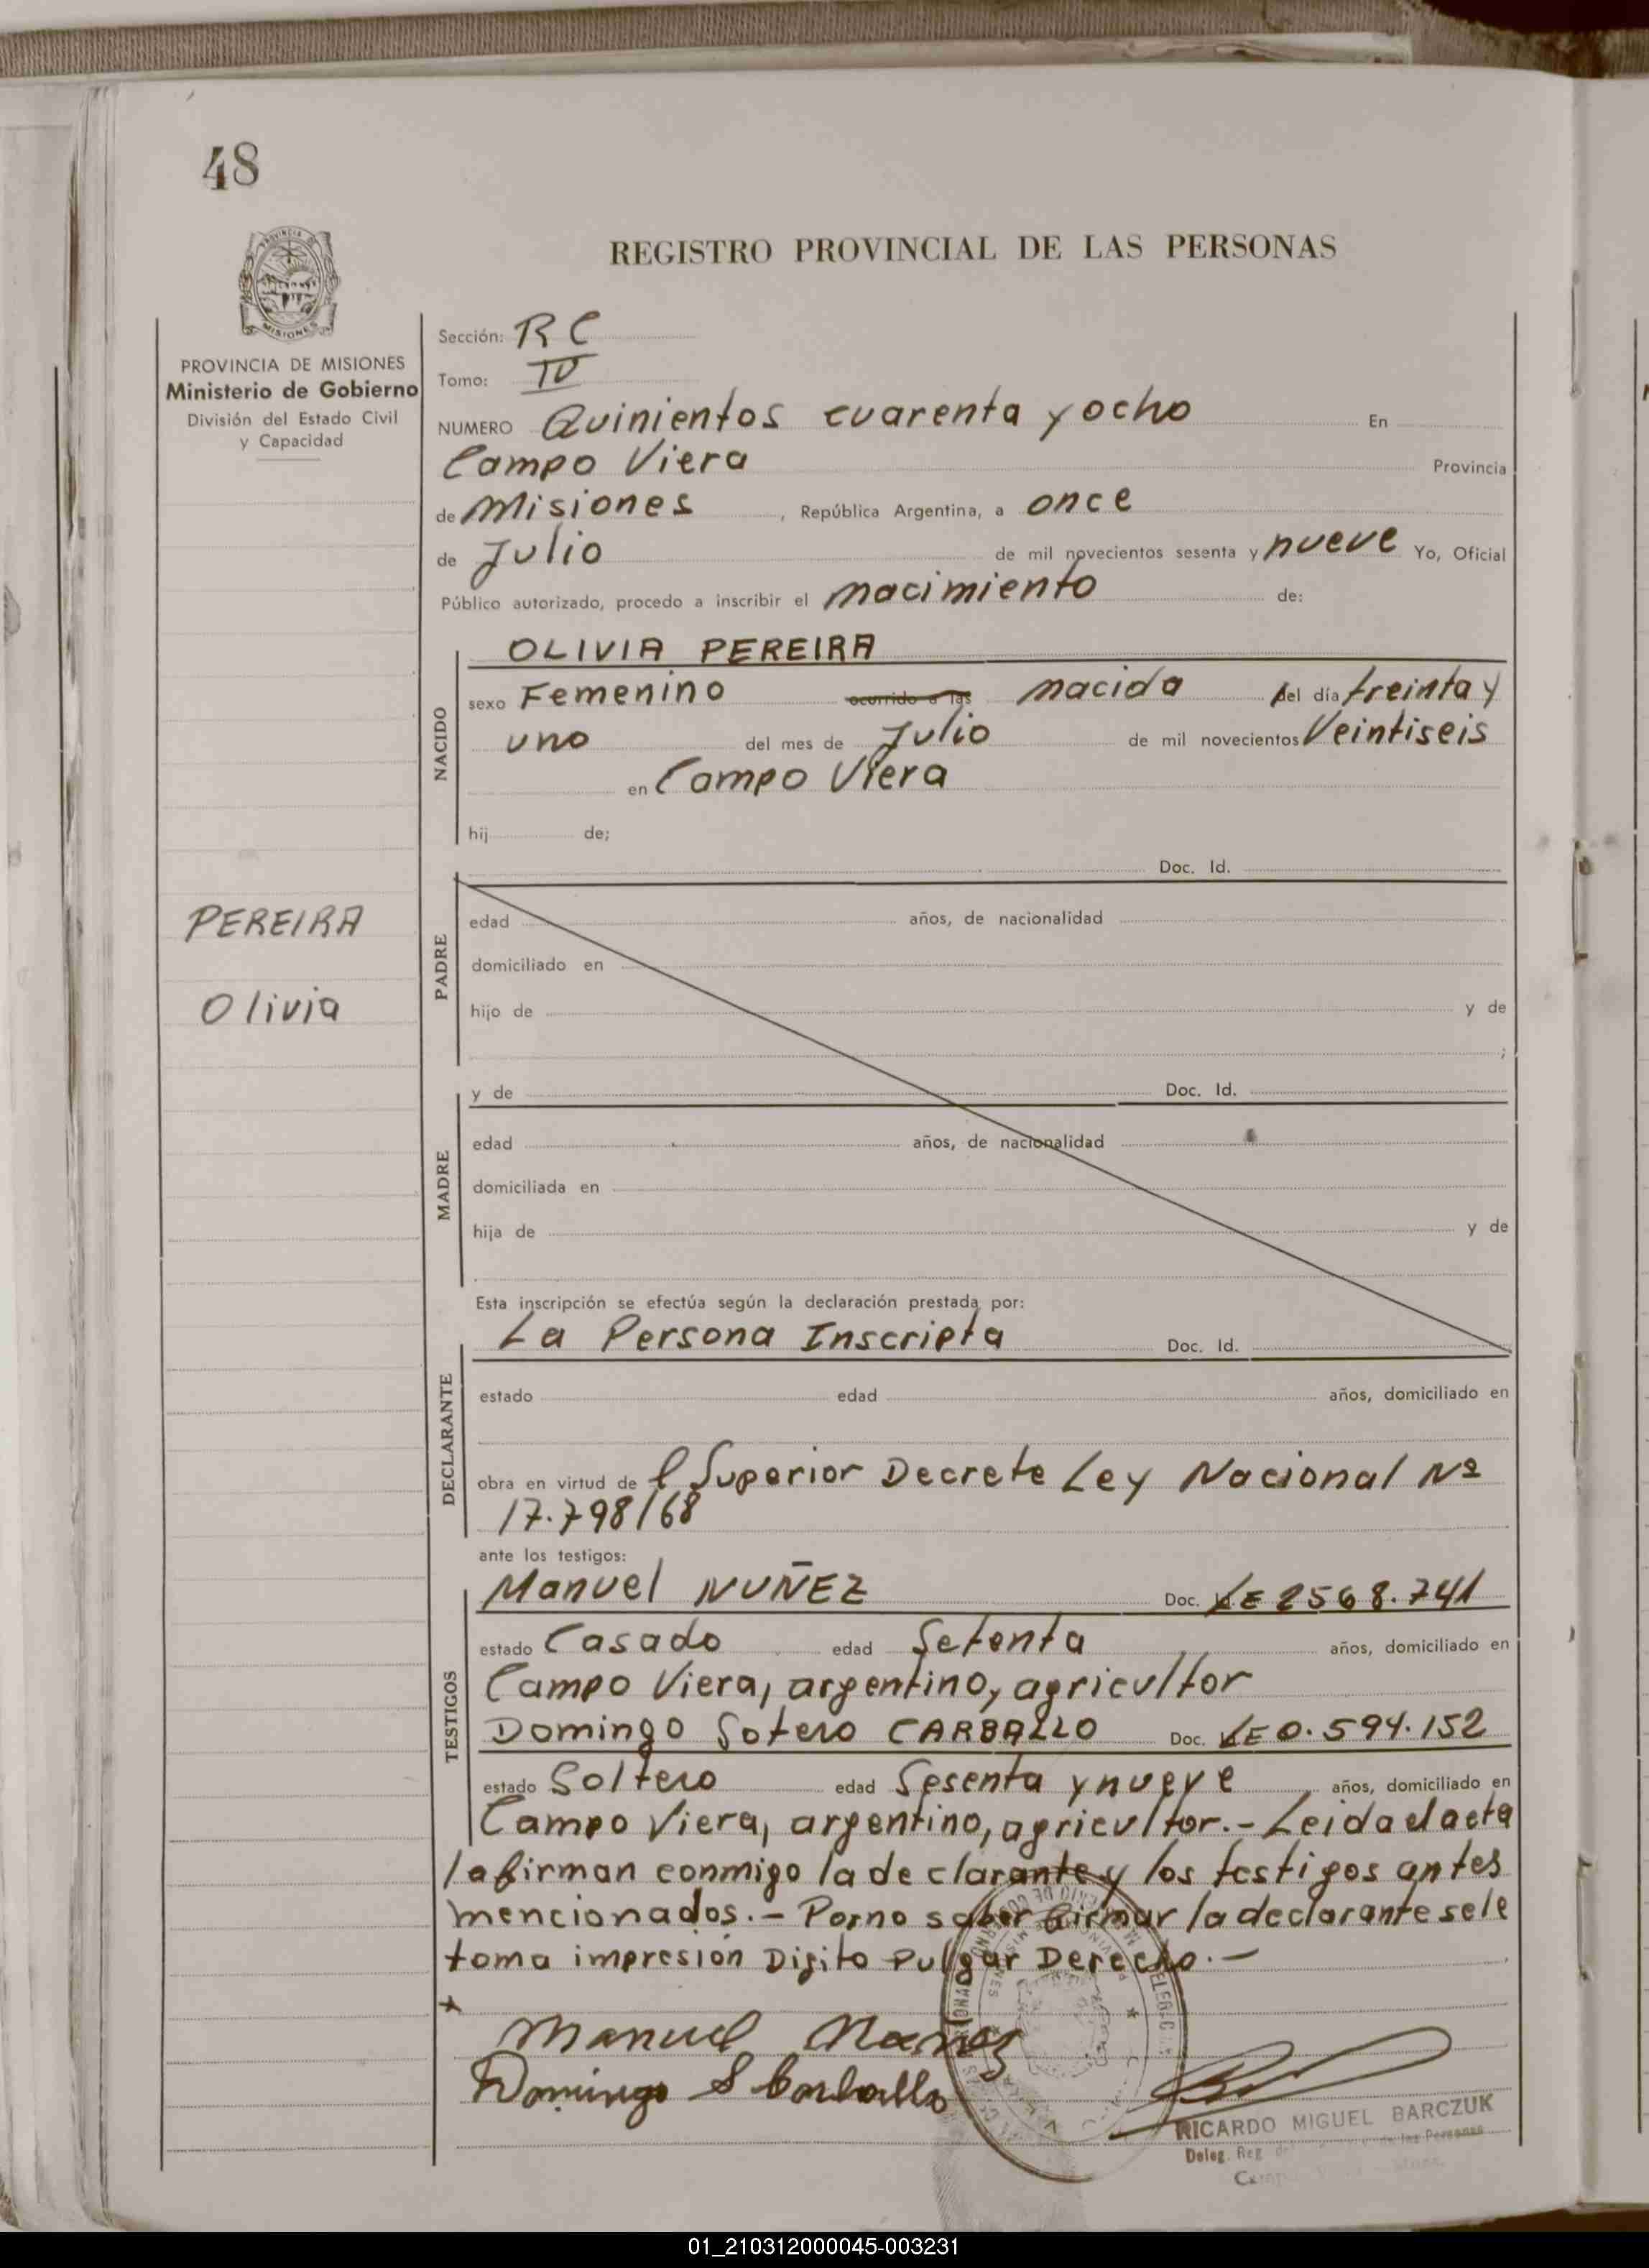 48
REGISTRO PROVINCIAL DE LAS PERSONAS
PROVINCIA DE MISIONES
Ministerio de Gobierno
División del Estado Civil
y Capacidad
Sección: R C
Tomo: IV
NUMERO Quinientos cuarenta y ocho En
Campo Viera Provincia
de Misiones, República Argentina, a once
de Julio de mil novecientos sesenta y nueve Yo, Oficial
Público autorizado, procedo a inscribir el nacimiento de:
NACIDO
OLIVIA PEREIRA
sexo Femenino ocurrido a las nacida del día treinta y
uno del mes de Julio de mil novecientos Veintiseis
en Campo Viera
hij de;
PEREIRA
Olivia
PADRE
Doc. Id.
edad años, de nacionalidad
domiciliado en
hijo de y de
;
MADRE
y de Doc. Id.
edad años, de nacionalidad
domiciliada en
hija de y de
Esta inscripción se efectúa según la declaración prestada por:
DECLARANTE
La Persona Inscripta Doc. Id.
estado edad años, domiciliado en
obra en virtud de l Superior Decrete Ley Nacional Nº
17.798/68
ante los testigos:
TESTIGOS
Manuel NUÑEZ Doc. LE 2568.741
estado Casado edad Setenta años, domiciliado en
Campo Viera, argentino, agricultor
Domingo Sotero CARBALLO Doc. LE 0.594.152
estado Soltero edad Sesenta y nueve años, domiciliado en
Campo Viera, argentino, agricultor.- Leida el acta
la firman conmigo la declarante y los testigos antes
mencionados.- Por no saber firmar la declarante se le
toma impresión Digito Pulgar Derecho.-
Manuel
Domingo S Carballo
RICARDO MIGUEL BARCZUK
Deleg. Reg de las Personas
01_210312000045-003231